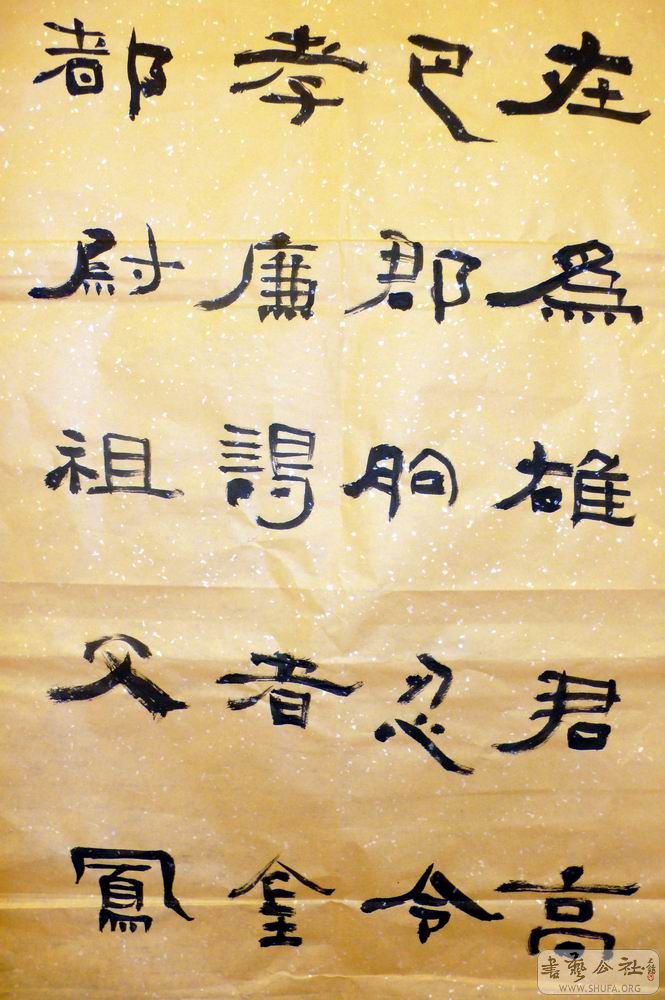 在為雄君高
巴郡朐忍令
孝廉謁者金
都尉祖父鳳
書藝公社
WWW.SHUFA.ORG